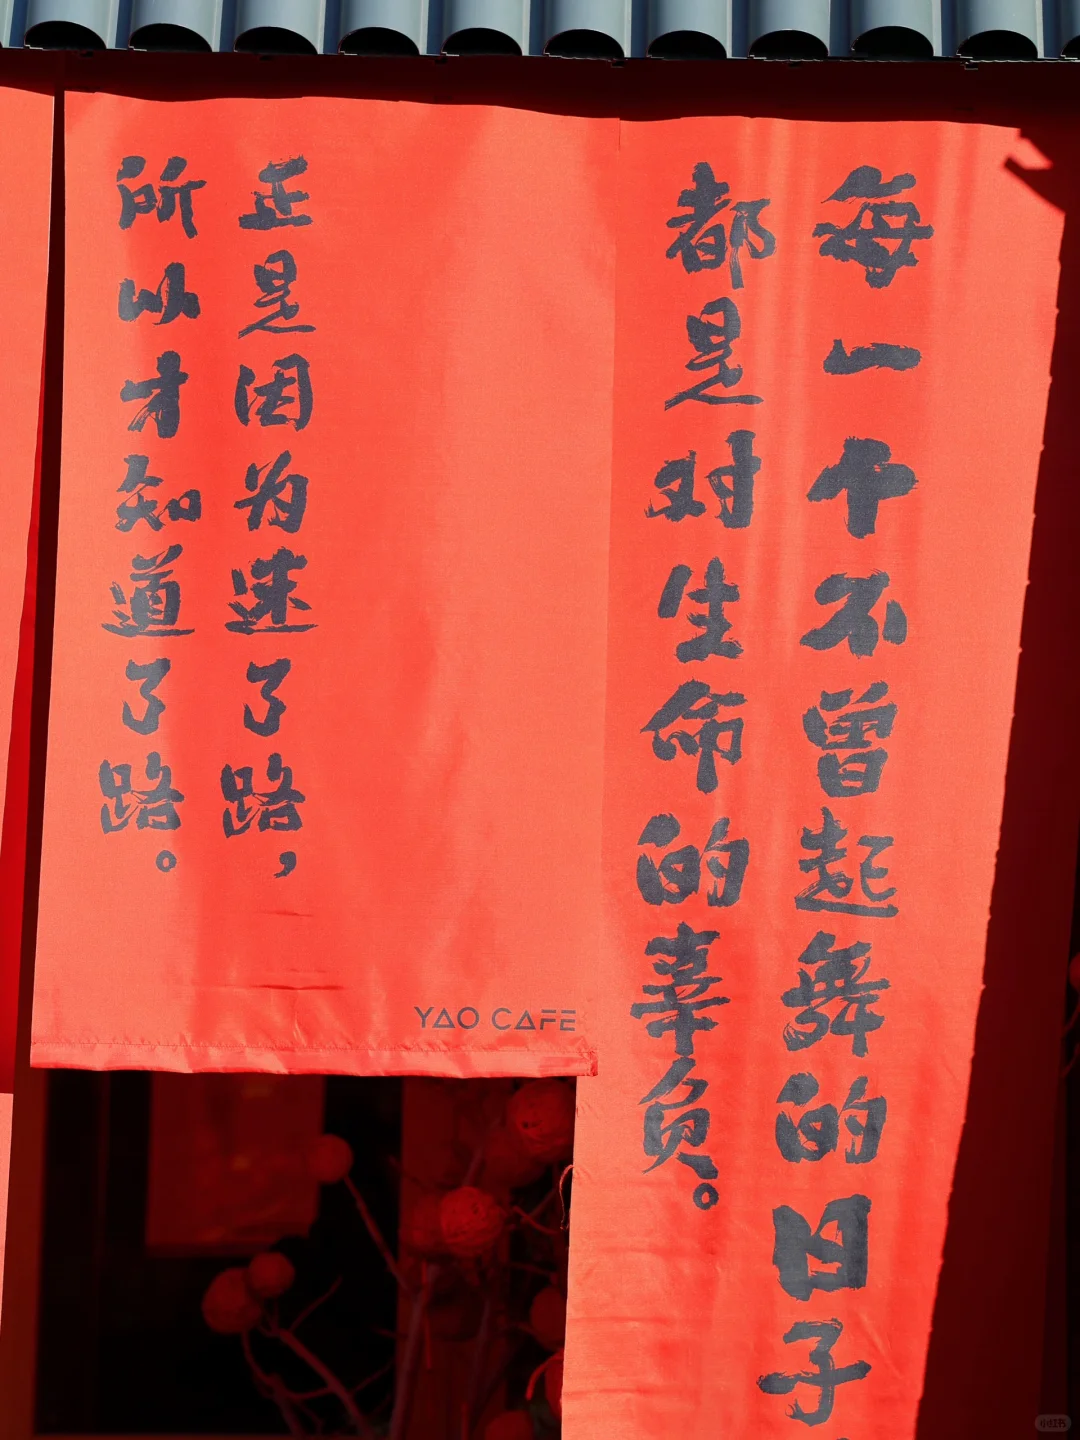 每一个不曾起舞的日子
都是对生命的辜负。
正是因为迷了路，
所以才知道了路。
YAO CAFE
小红书